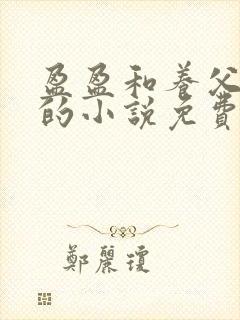 盈盈和養父
的小說免費
鄭麗瓊